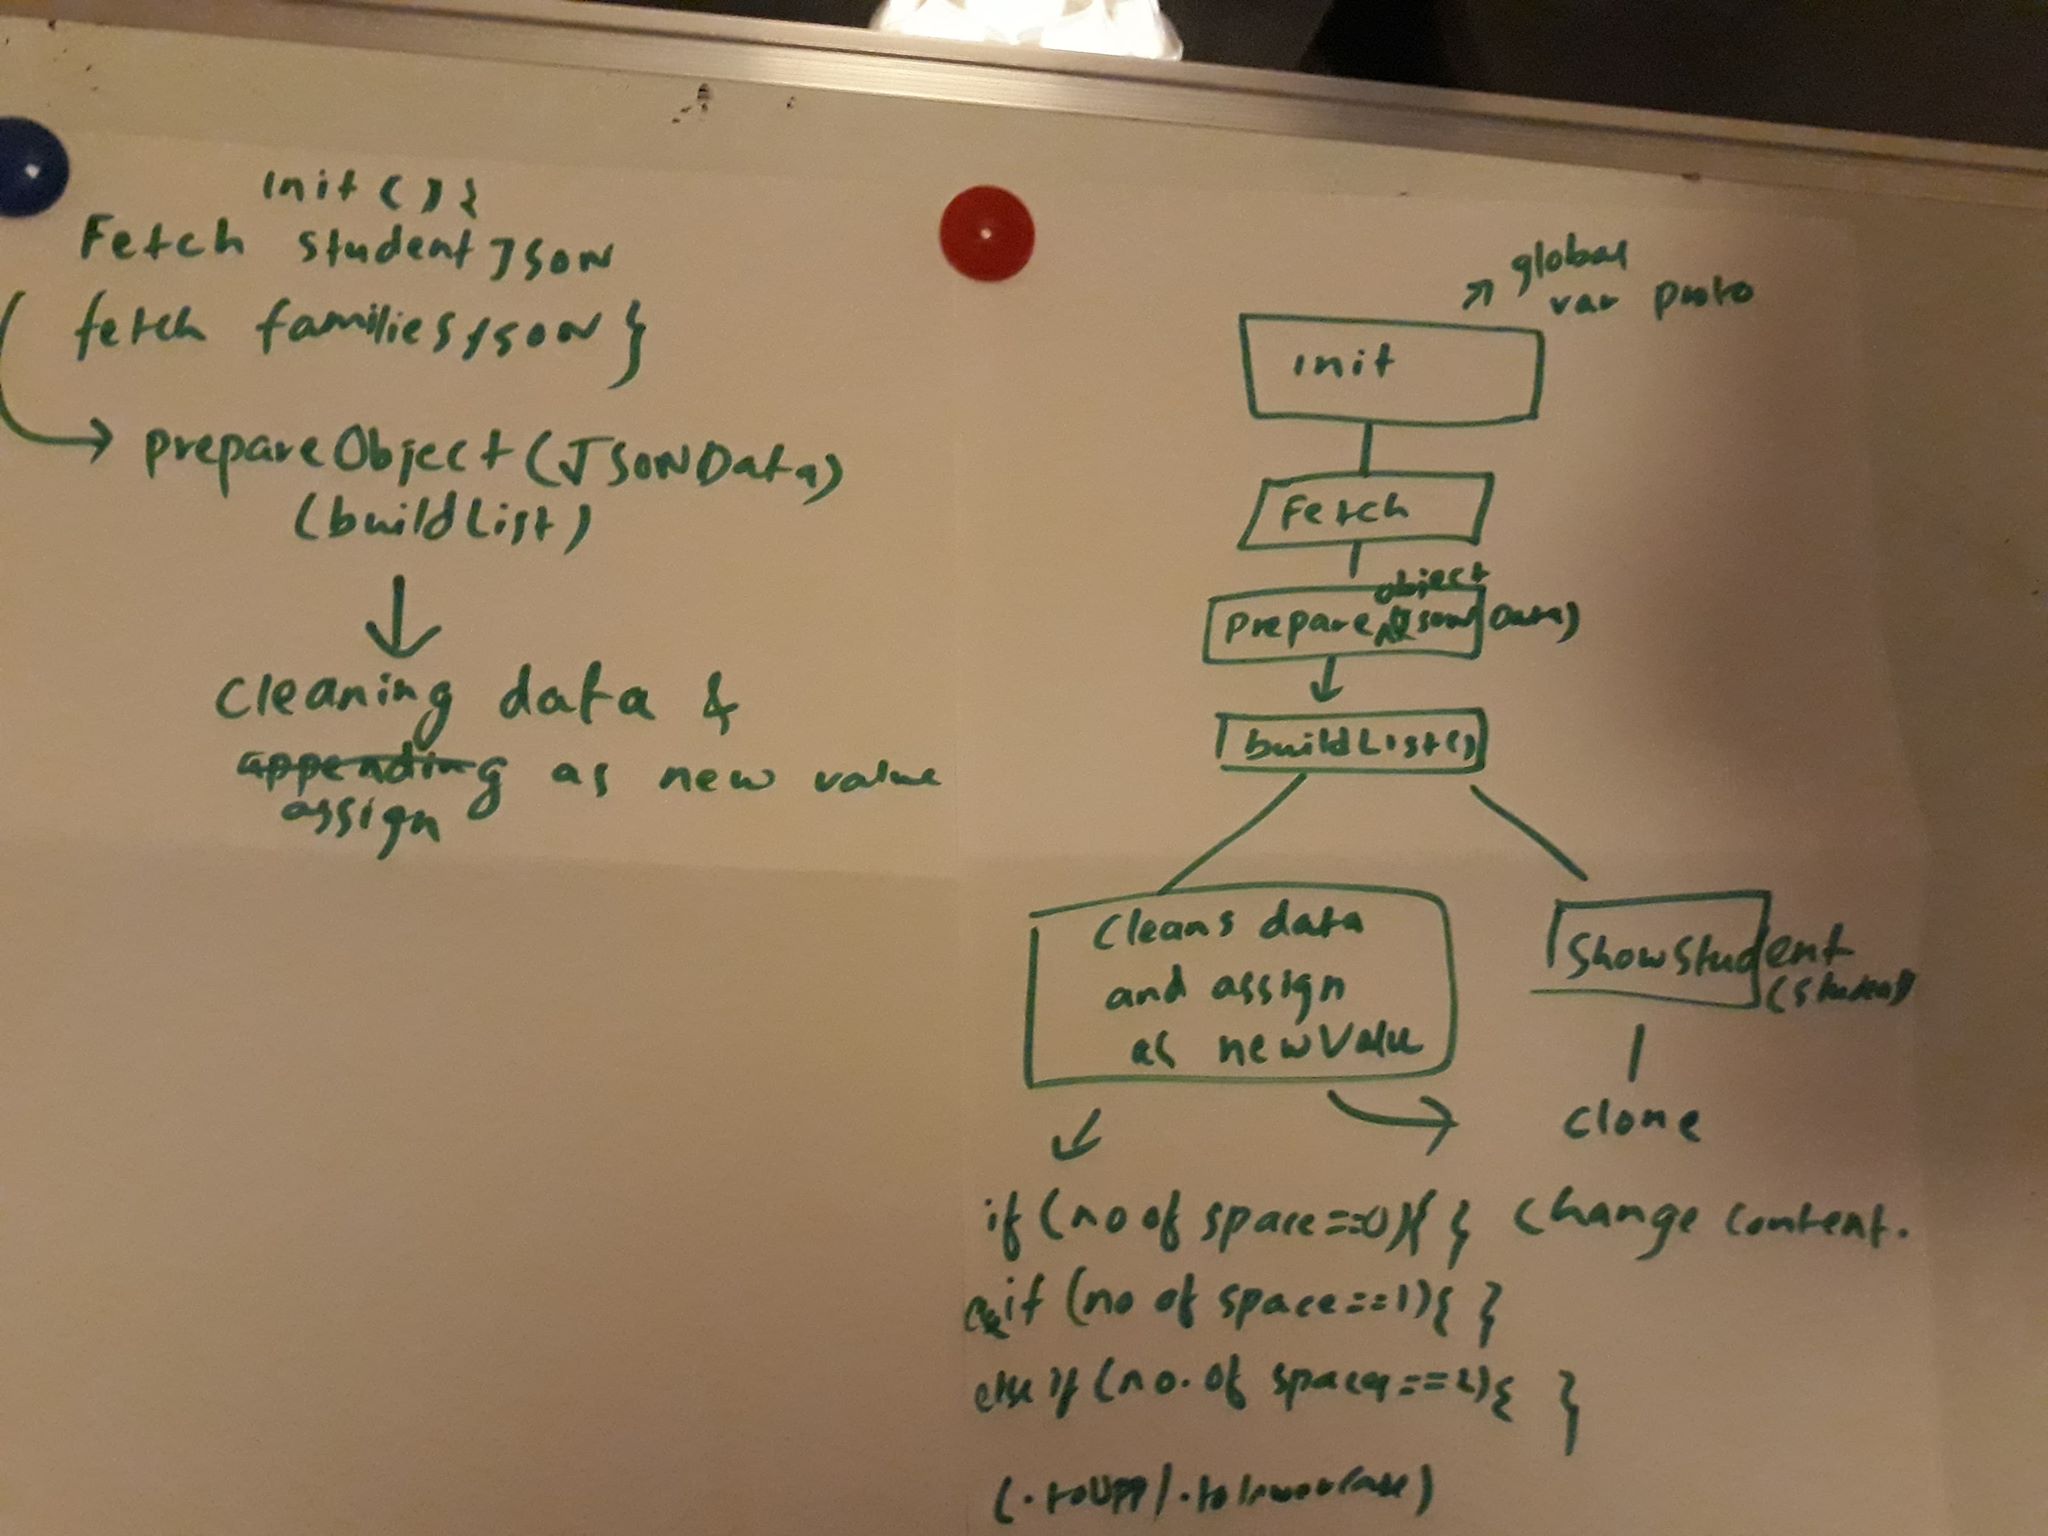 init(){
Fetch studentJSON
fetch familiesJSON}
prepareObject(JSONData)
(buildList)
cleaning data &
appending as new value
assign
global
var proto
init
Fetch
object
prepare(JSONData)
buildList()
Cleans data
and assign
as newValue
ShowStudent
(student)
clone
if (no of space==0){ } change content.
if (no of space==1){ }
else if (no. of spaces==2){ }
(.toUpp/.toLowerCase)